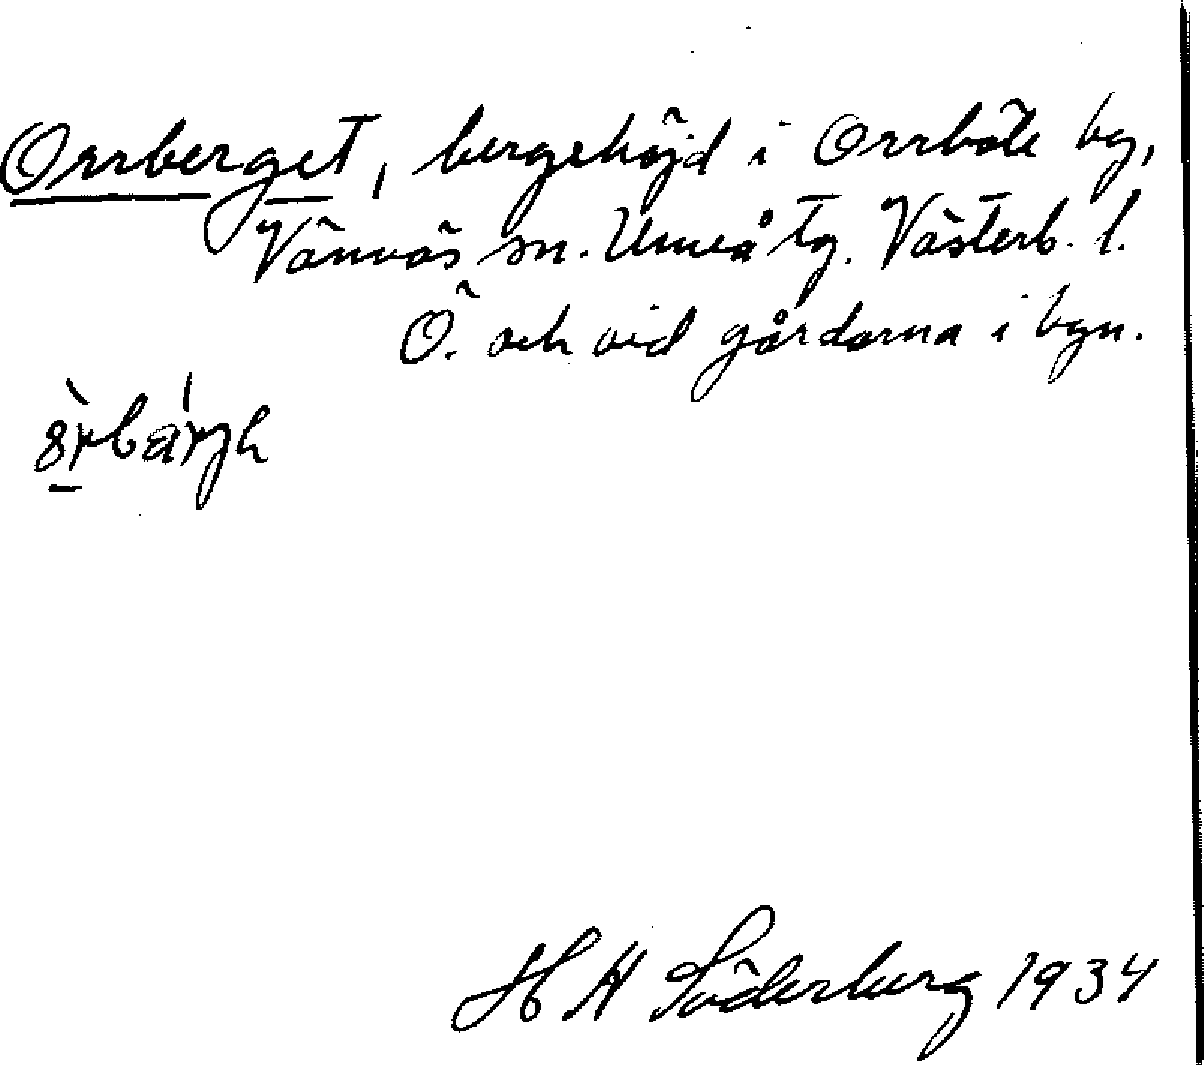 Orrberget, bergshöjd i Orrböle by,
Vännäs sn. Umeå tg. Västerb. l.
Ö. och vid gårdarna i byn.
H H Söderberg 1934